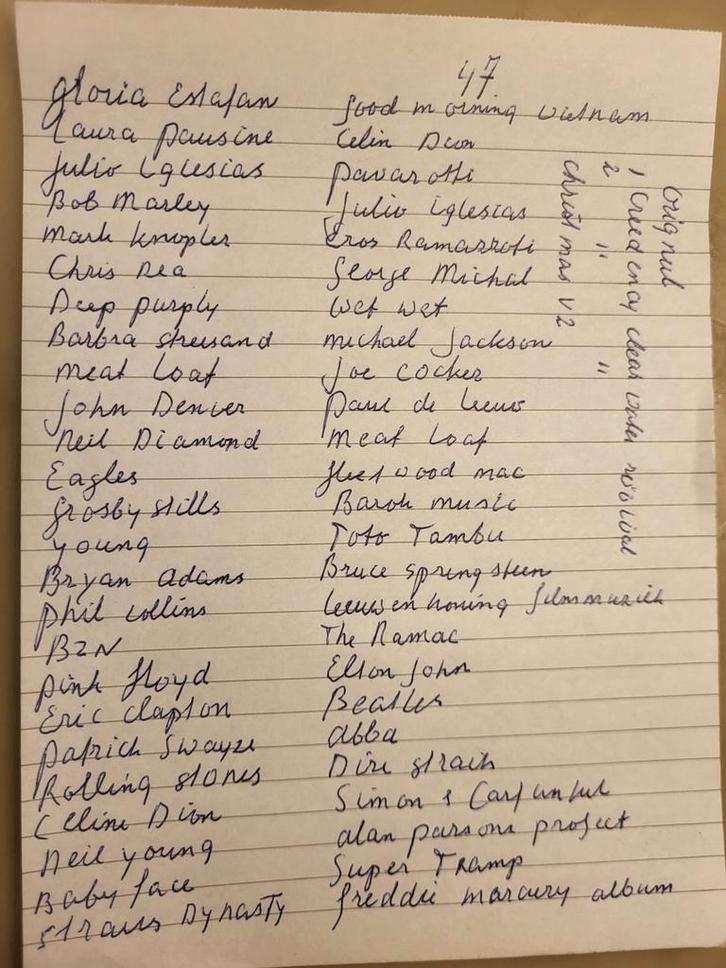 47
Gloria Estafan
Laura Pausine
Julio Iglesias
Bob Marley
Mark knopler
Chris Rea
Deep purply
Barbra streisand
Meat Loaf
John Denver
Neil Diamond
Eagles
Crosby stills
young
Bryan adams
Phil collins
BZN
Pink floyd
Eric Clapton
Patrick Swayze
Rolling stones
Celine Dion
Neil young
Baby face
Straus Dynasty
Good morning vietnam
Celin Dion
Pavarotti
Julio iglesias
Eros Ramazzoti
George Michal
Wet wet
michael Jackson
Joe Cocker
Paul de Leeuw
Meat Loaf
fleet wood mac
Barok music
Toto Tambu
Bruce springsteen
Leeuwenkoning filmmuziek
The Ramac
Elton John
Beatles
abba
Dire straits
Simon & Carfunkul
alan parsons project
Super Tramp
freddie marcury album
Orignal
1 Creedency clear water
2 " "
christmas v2